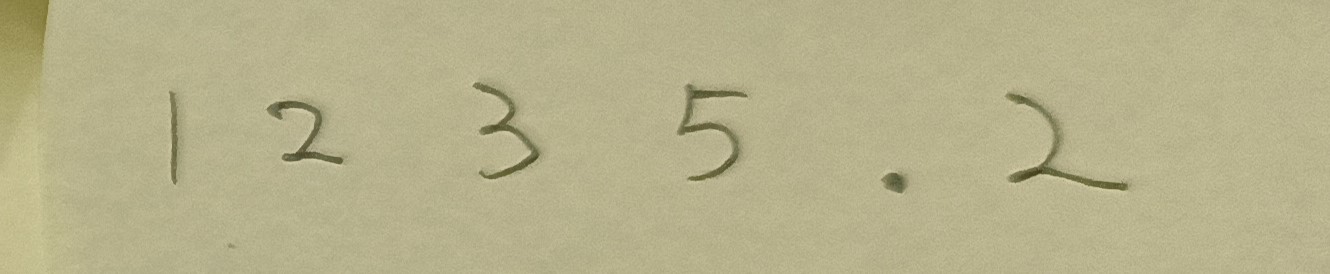 1 2 3 5 . 2